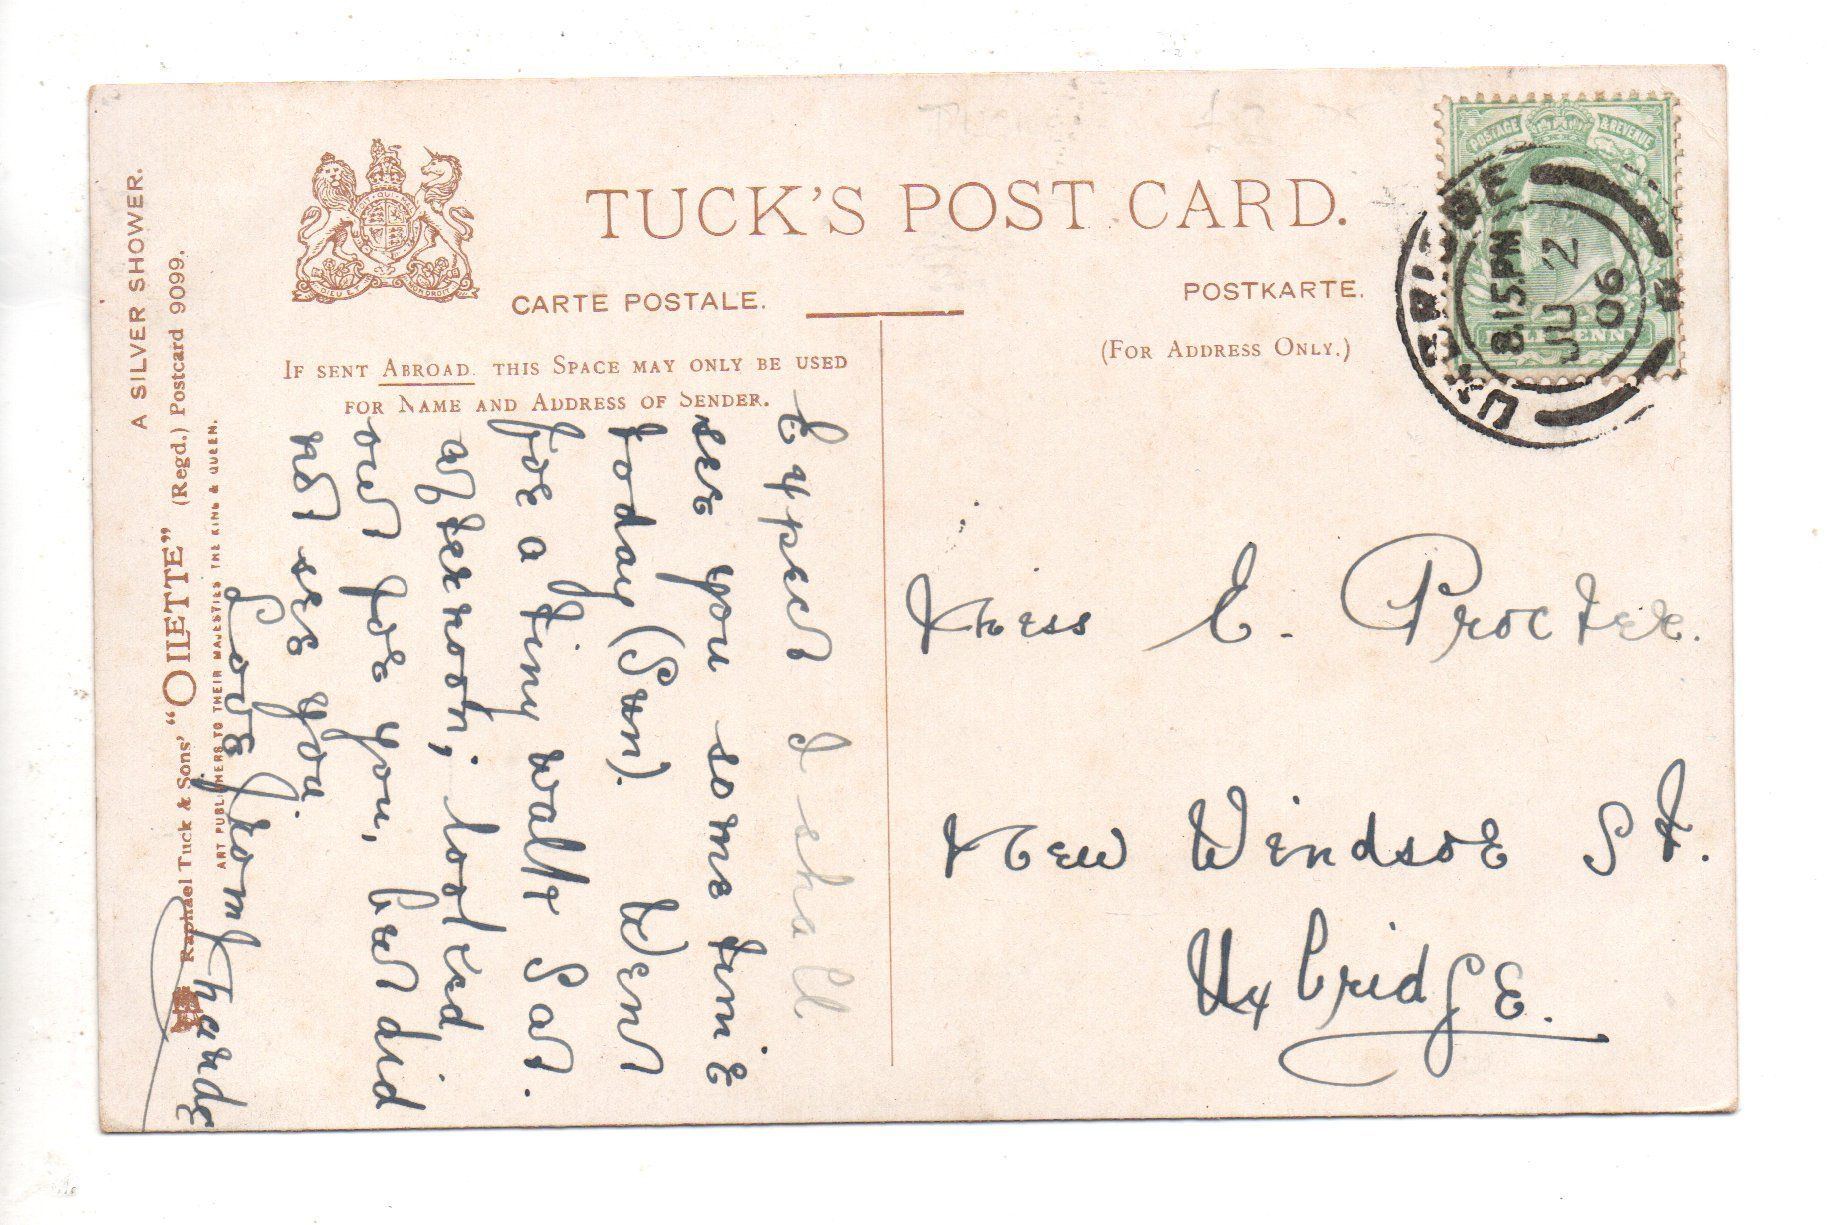 A SILVER SHOWER.
Raphael Tuck & Sons' "OILETTE" (Regd.) Postcard 9099.
ART PUBLISHERS TO THEIR MAJESTIES THE KING & QUEEN.
TUCK'S POST CARD.
CARTE POSTALE.
POSTKARTE.
IF SENT ABROAD THIS SPACE MAY ONLY BE USED
FOR NAME AND ADDRESS OF SENDER.
(FOR ADDRESS ONLY.)
POSTAGE & REVENUE
UXBRIDGE
8.15 PM
JU 2
06
Expect I shall
see you some time
today (Sun). Went
for a tiny walk Sat.
afternoon; looked
out for you, but did
not see you.
Love from
Miss E. Procter.
New Windsor St.
Uxbridge.